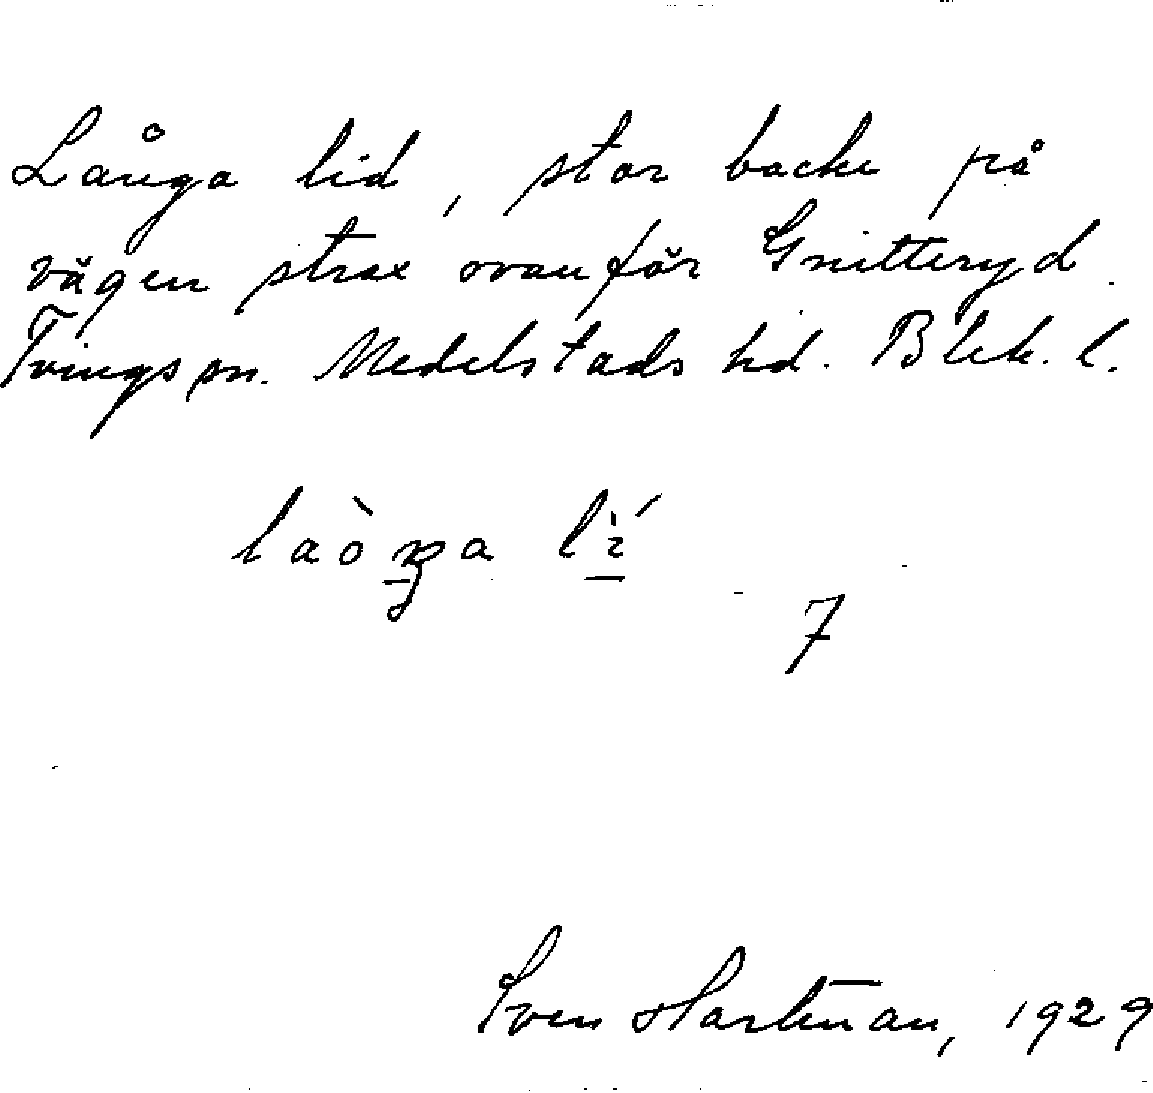 Långa lid, stor backe på
vägen strax ovanför Gnitteryd.
Tvings sn. Medelstads hd. Blek. l.
laòŋa lí
7
Sven Hartman, 1929